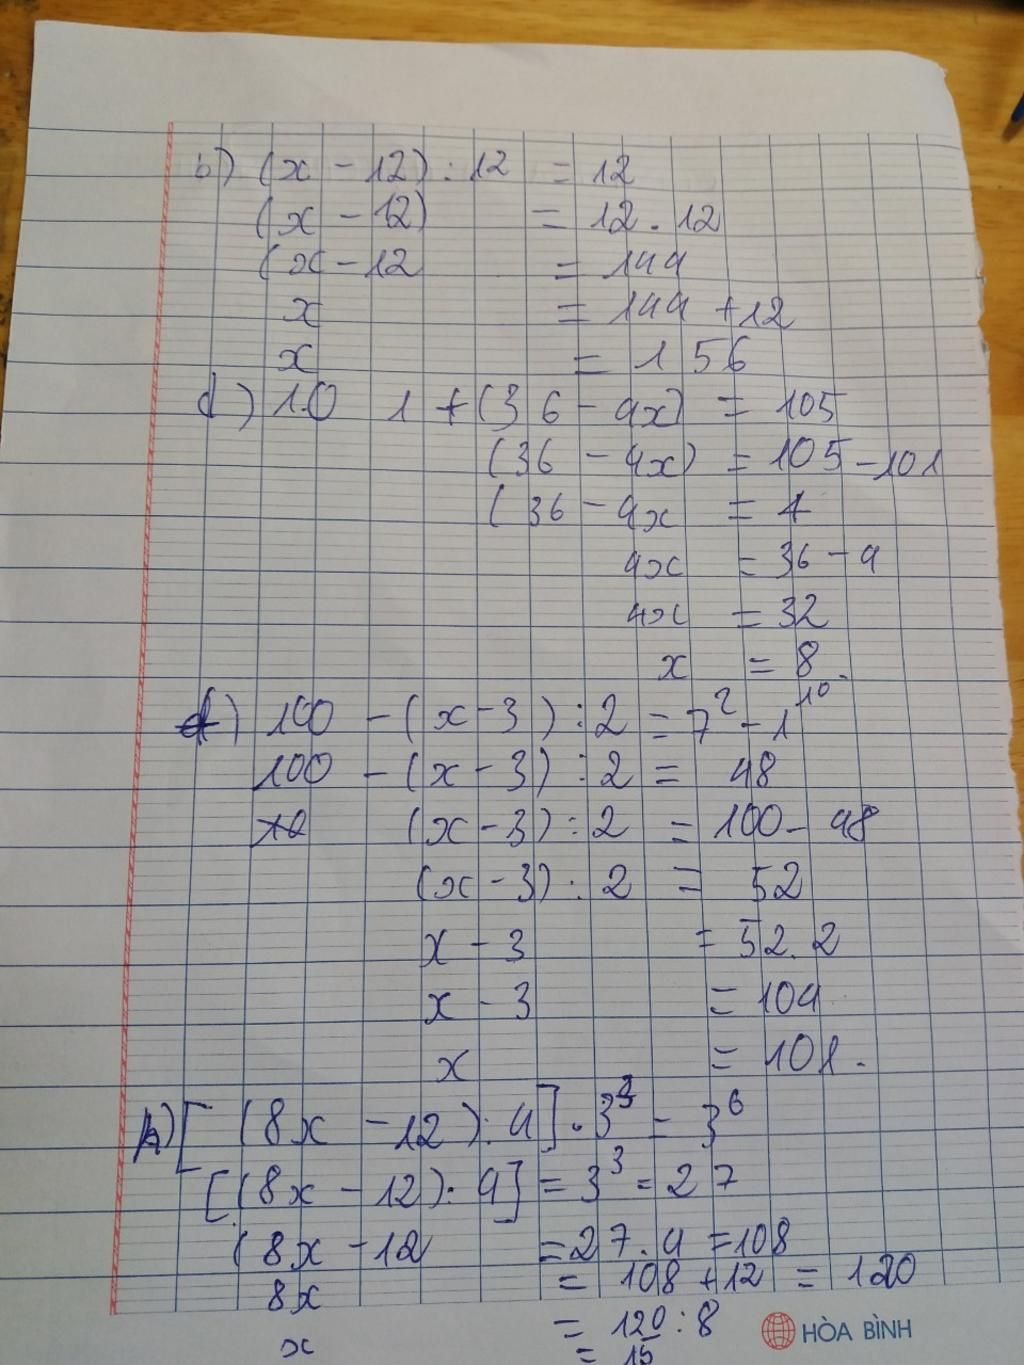 b) (x - 12) : 12 = 12
(x - 12) = 12 . 12
(x - 12 = 144
x = 144 + 12
x = 156
d) 10 1 + (36 - 4x) = 105
(36 - 4x) = 105 - 101
(36 - 4x = 4
4x = 36 - 4
4x = 32
x = 8.
f) 100 - (x - 3) : 2 = 7² - 1¹⁰
100 - (x - 3) : 2 = 48
(x - 3) : 2 = 100 - 48
(x - 3) : 2 = 52
x - 3 = 52.2
x - 3 = 104
x = 101.
h) [ (8x - 12) : 4] . 3³ = 3⁶
[(8x - 12) : 4] = 3³ = 27
(8x - 12 = 27.4 = 108
8x = 108 + 12 = 120
= 120 : 8
x = 15
HÒA BÌNH